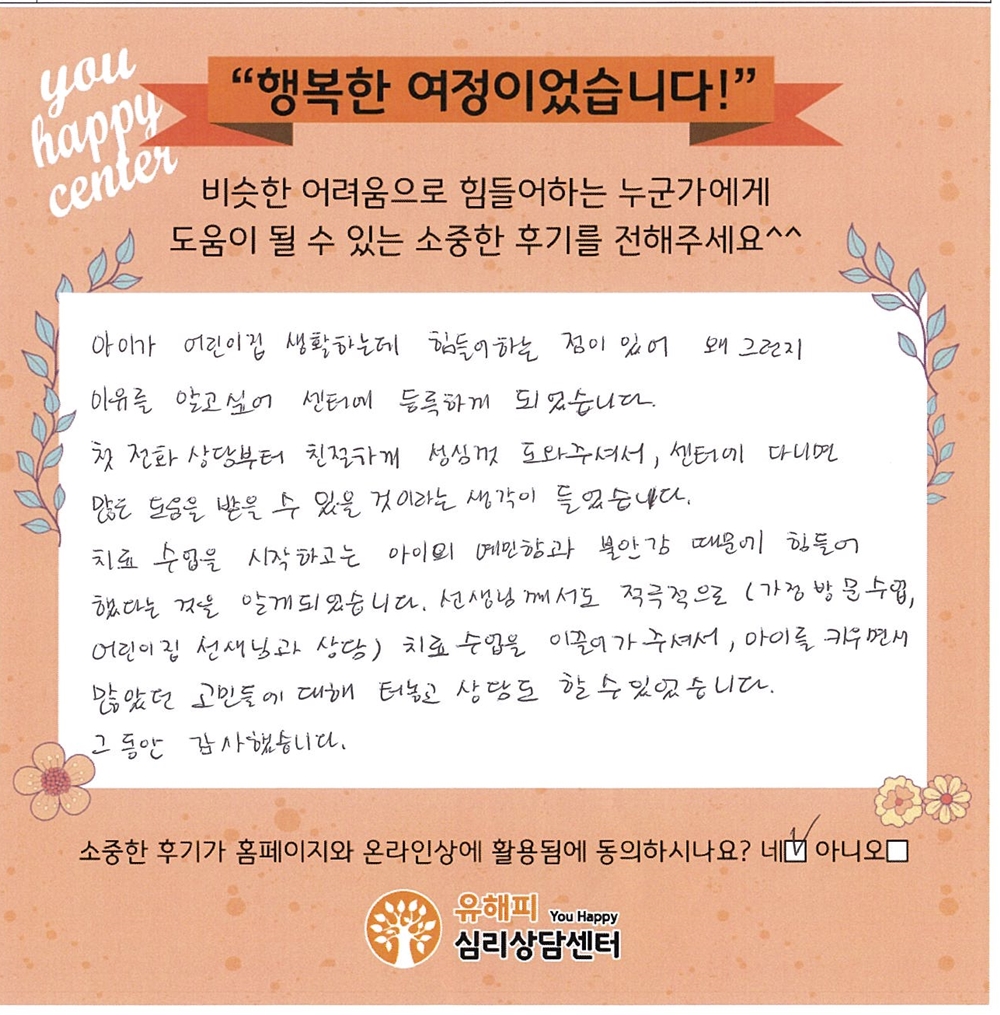 you
happy
center
“행복한 여정이었습니다!”
비슷한 어려움으로 힘들어하는 누군가에게
도움이 될 수 있는 소중한 후기를 전해주세요^^
아이가 어린이집 생활하는데 힘들어하는 점이 있어 왜 그런지
이유를 알고싶어 센터에 등록하게 되었습니다.
첫 전화 상담부터 친절하게 성심껏 도와주셔서, 센터에 다니면
많은 도움을 받을 수 있을 것이라는 생각이 들었습니다.
치료 수업을 시작하고는 아이의 예민함과 불안감 때문에 힘들어
했다는 것을 알게되었습니다. 선생님께서도 적극적으로 (가정방문수업,
어린이집 선생님과 상담) 치료 수업을 이끌어가주셔서, 아이를 키우면서
많았던 고민들에 대해 터놓고 상담도 할 수 있었습니다.
그동안 감사했습니다.
소중한 후기가 홈페이지와 온라인상에 활용됨에 동의하시나요? 네☑ 아니오□
유해피 You Happy
심리상담센터